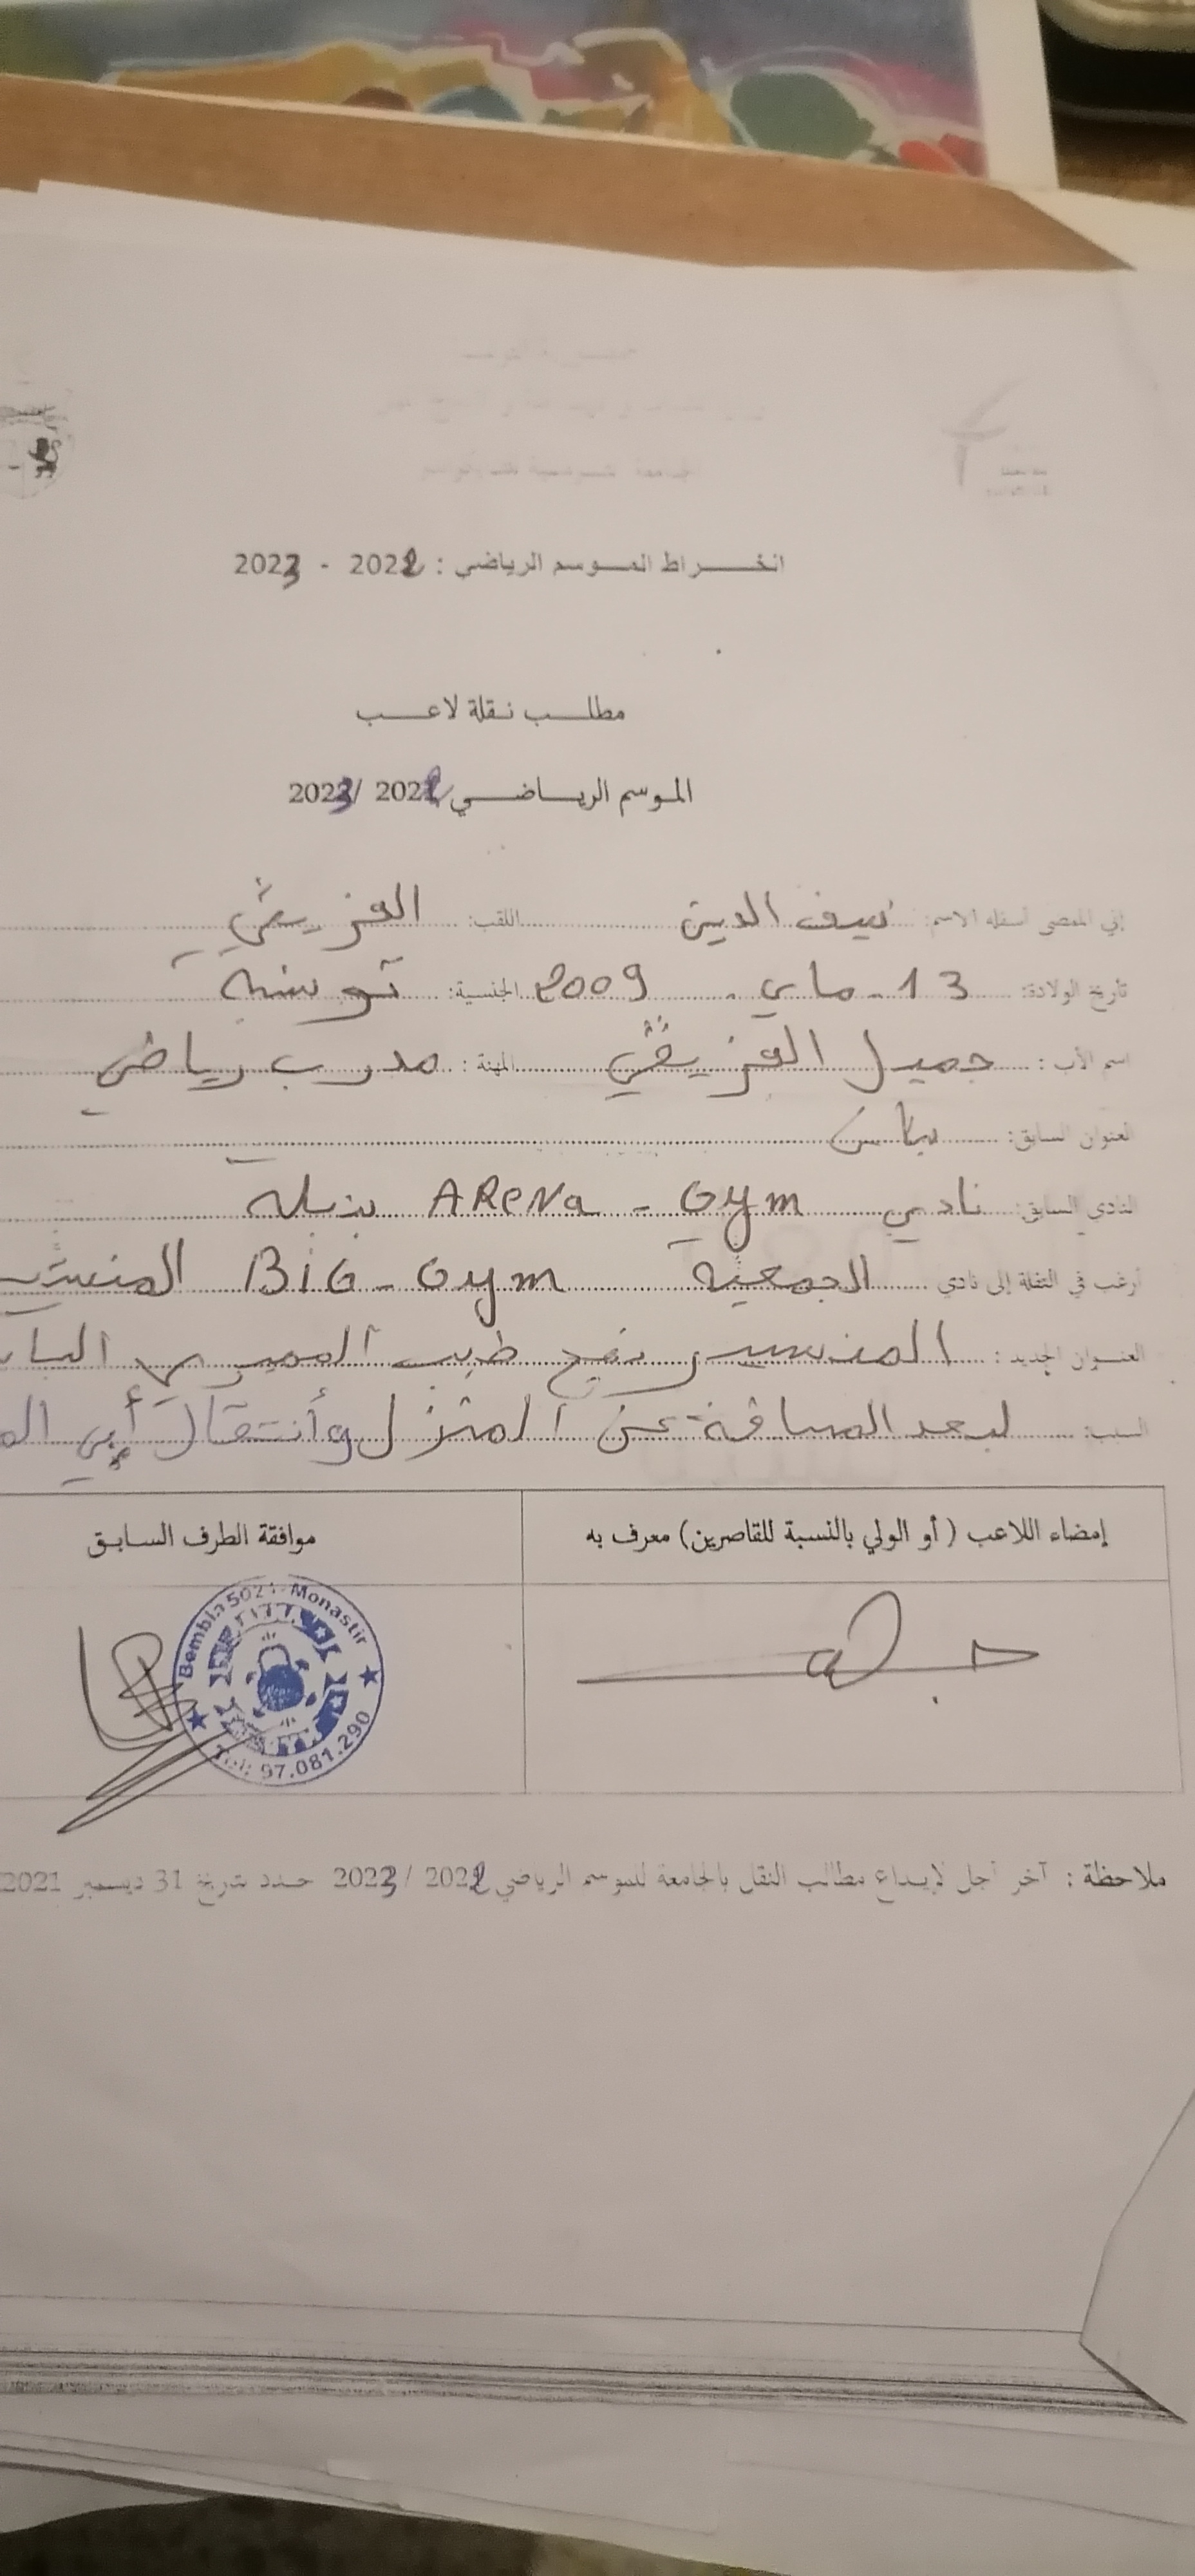 انخراط الموسم الرياضي : 2022 - 2023
مطلب نقلة لاعب
الموسم الرياضي 2022 /2023
إني الممضي أسفله الاسم: سيف الدين اللقب: الفزيقي
تاريخ الولادة: 13 - ماي - 2009 الجنسية: تونسية
اسم الأب : جميل الفزيقي المهنة : مدرب رياضي
العنوان السابق:
النادي السابق: نادي ARENa - Gym بنبلة
أرغب في النقلة إلى نادي الجمعية BiG - Gym
العنوان الجديد : المنستير نهج طبيب
السبب: لبعد المسافة عن المنزل وأنتقال أبي
إمضاء اللاعب ( أو الولي بالنسبة للقاصرين) معرف به
موافقة الطرف السابق
Bembla 5021 - Monastir
Tel: 97.081.290
ملاحظة : آخر أجل لإيداع مطالب النقل بالجامعة للموسم الرياضي 2022 / 2023 حدد بتاريخ 31 ديسمبر 2021